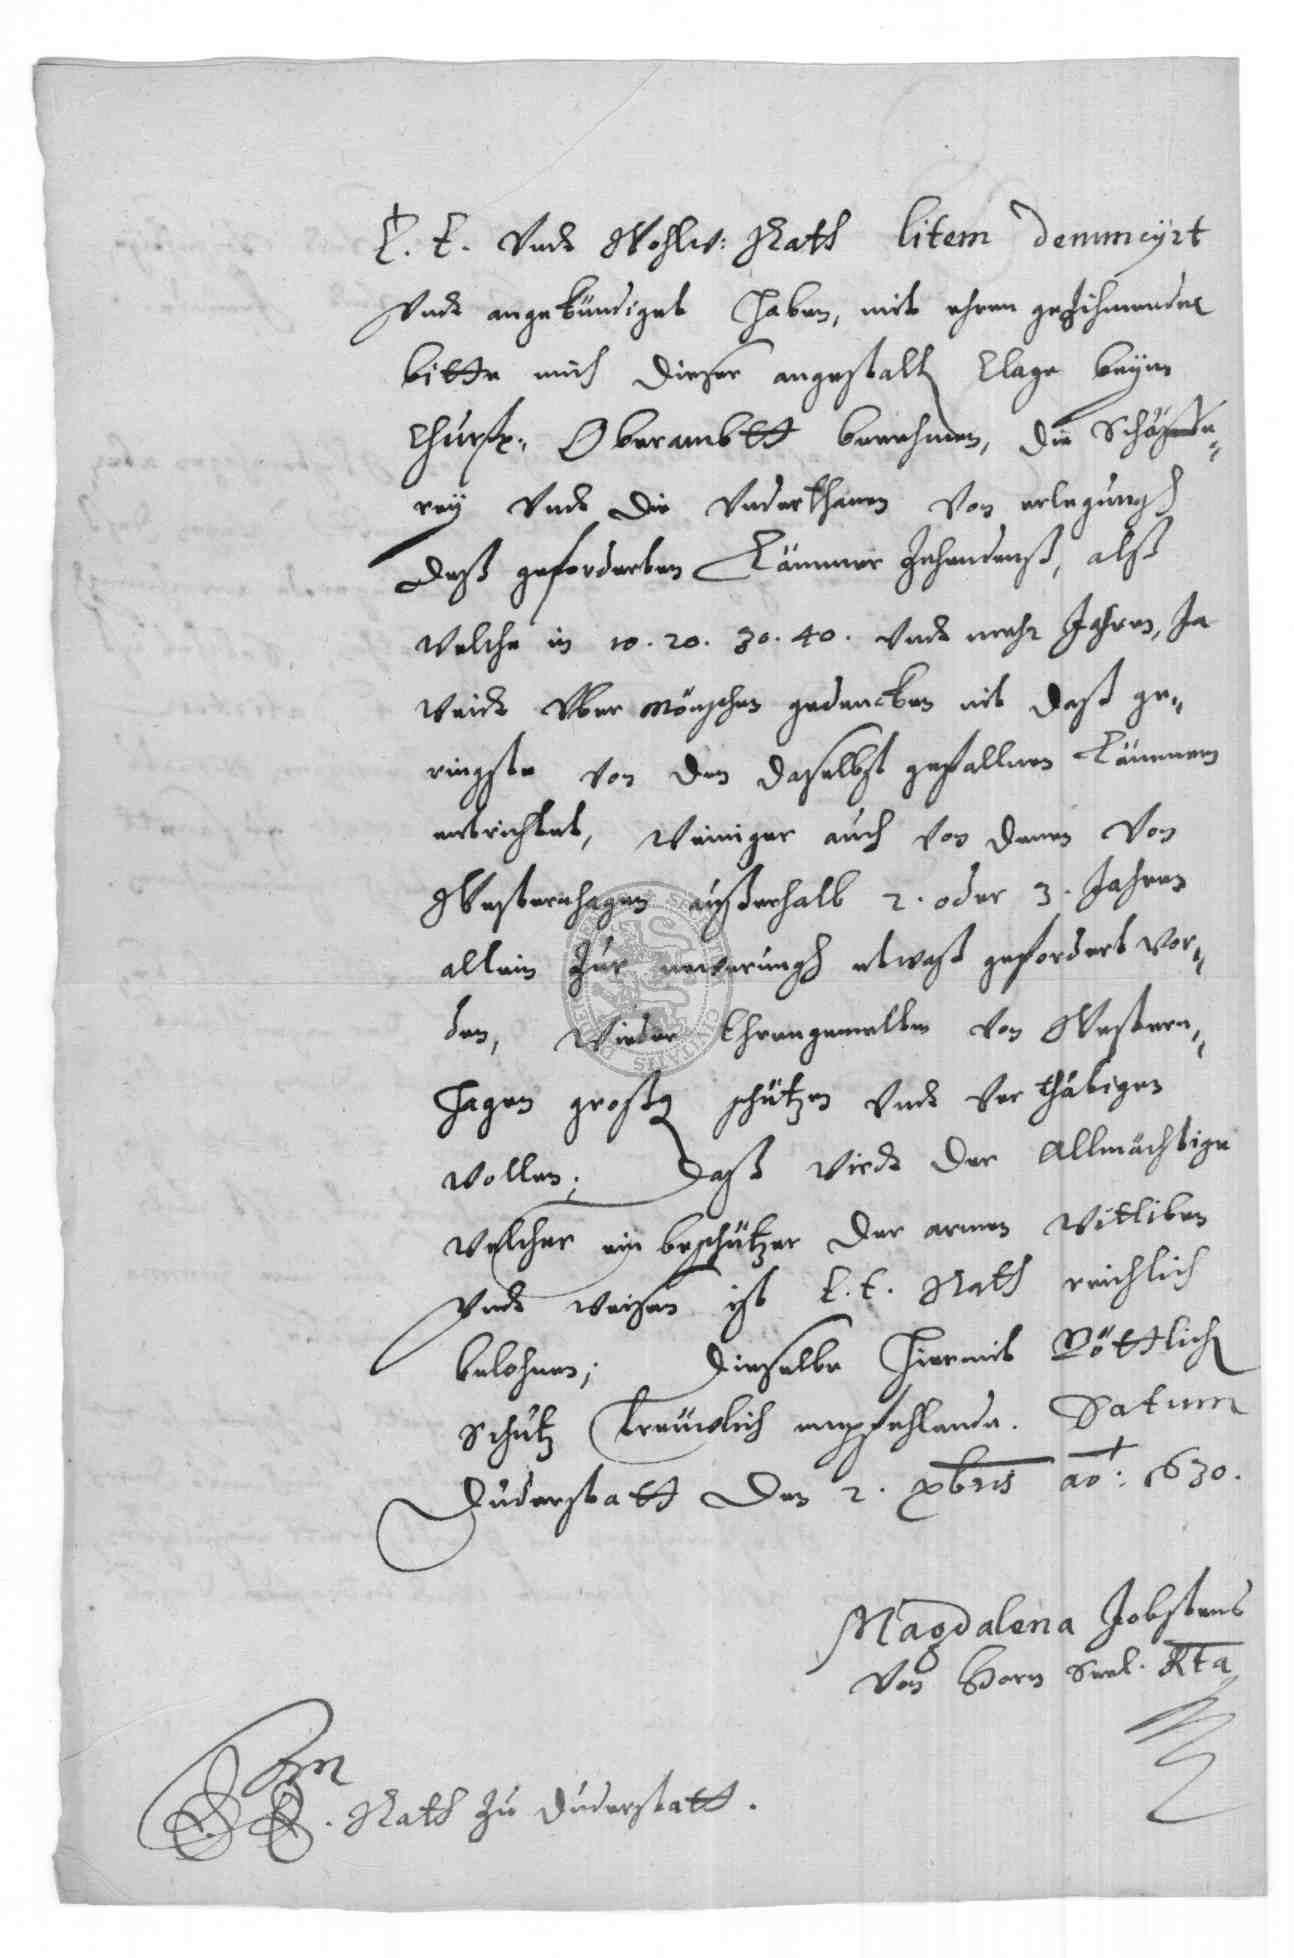 E. E. Vndt Wohlw: Rath litem denunciirt
Vndt angekündiget haben, mit ehren geziehmender
bitte mich dieser angestalt Clage beÿm
Churfr: Oberambtt benehmen, die Schäffe„
reÿ Vndt die Vnderthanen Von erlegungh
deß geforderten Lämmer Zehendenß, alß
welche in 10. 20. 30. 40. Vndt mehr Jahren, Ja
weidt Vber Mönschen gedencken nit daß ge„
ringste von den daselbst gefallnen Lämmern
entrichtet, weiniger auch von denen Von
Westernhagen außerhalb 2. oder 3. Jahren
allein zur newerungh etwaß gefordert wor„
den, wieder Ehrengemelten von Western„
hagen großg schützen Vndt verthätigen
wollen; daß wirdt der Allmächtige
welcher ein beschützer der armen Witliben
Vndt weisen ist E. E. Rath reichlich
belohnen; dieselbe hiermit Göttlich
Schutz trewlich empfehlende. Datum
Duderstatt den 2. xbris ao: 1630.
Magdalena Jobstens
von Horn Seel. Rta
An
E. E. Rath zu Duderstatt.